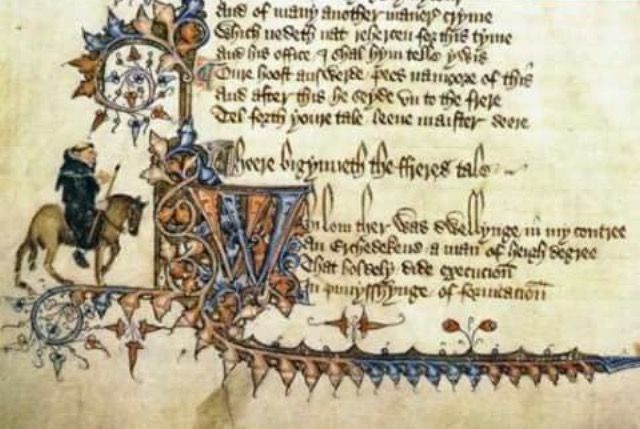 And of many another maner cryme
Which nedeth nat rehercen for this tyme
And his office I shal hym telle ywis
Oure hoost answerde pees namoore of this
And after this he seyde vn to the frere
Tel forth youre tale leeue maister deere
Heere bigynneth the ffreres tale
Whilom ther was dwellynge in my contree
An Erchedekene a man of heigh degree
That boldely dide execucion
In punysshynge of fornicacion